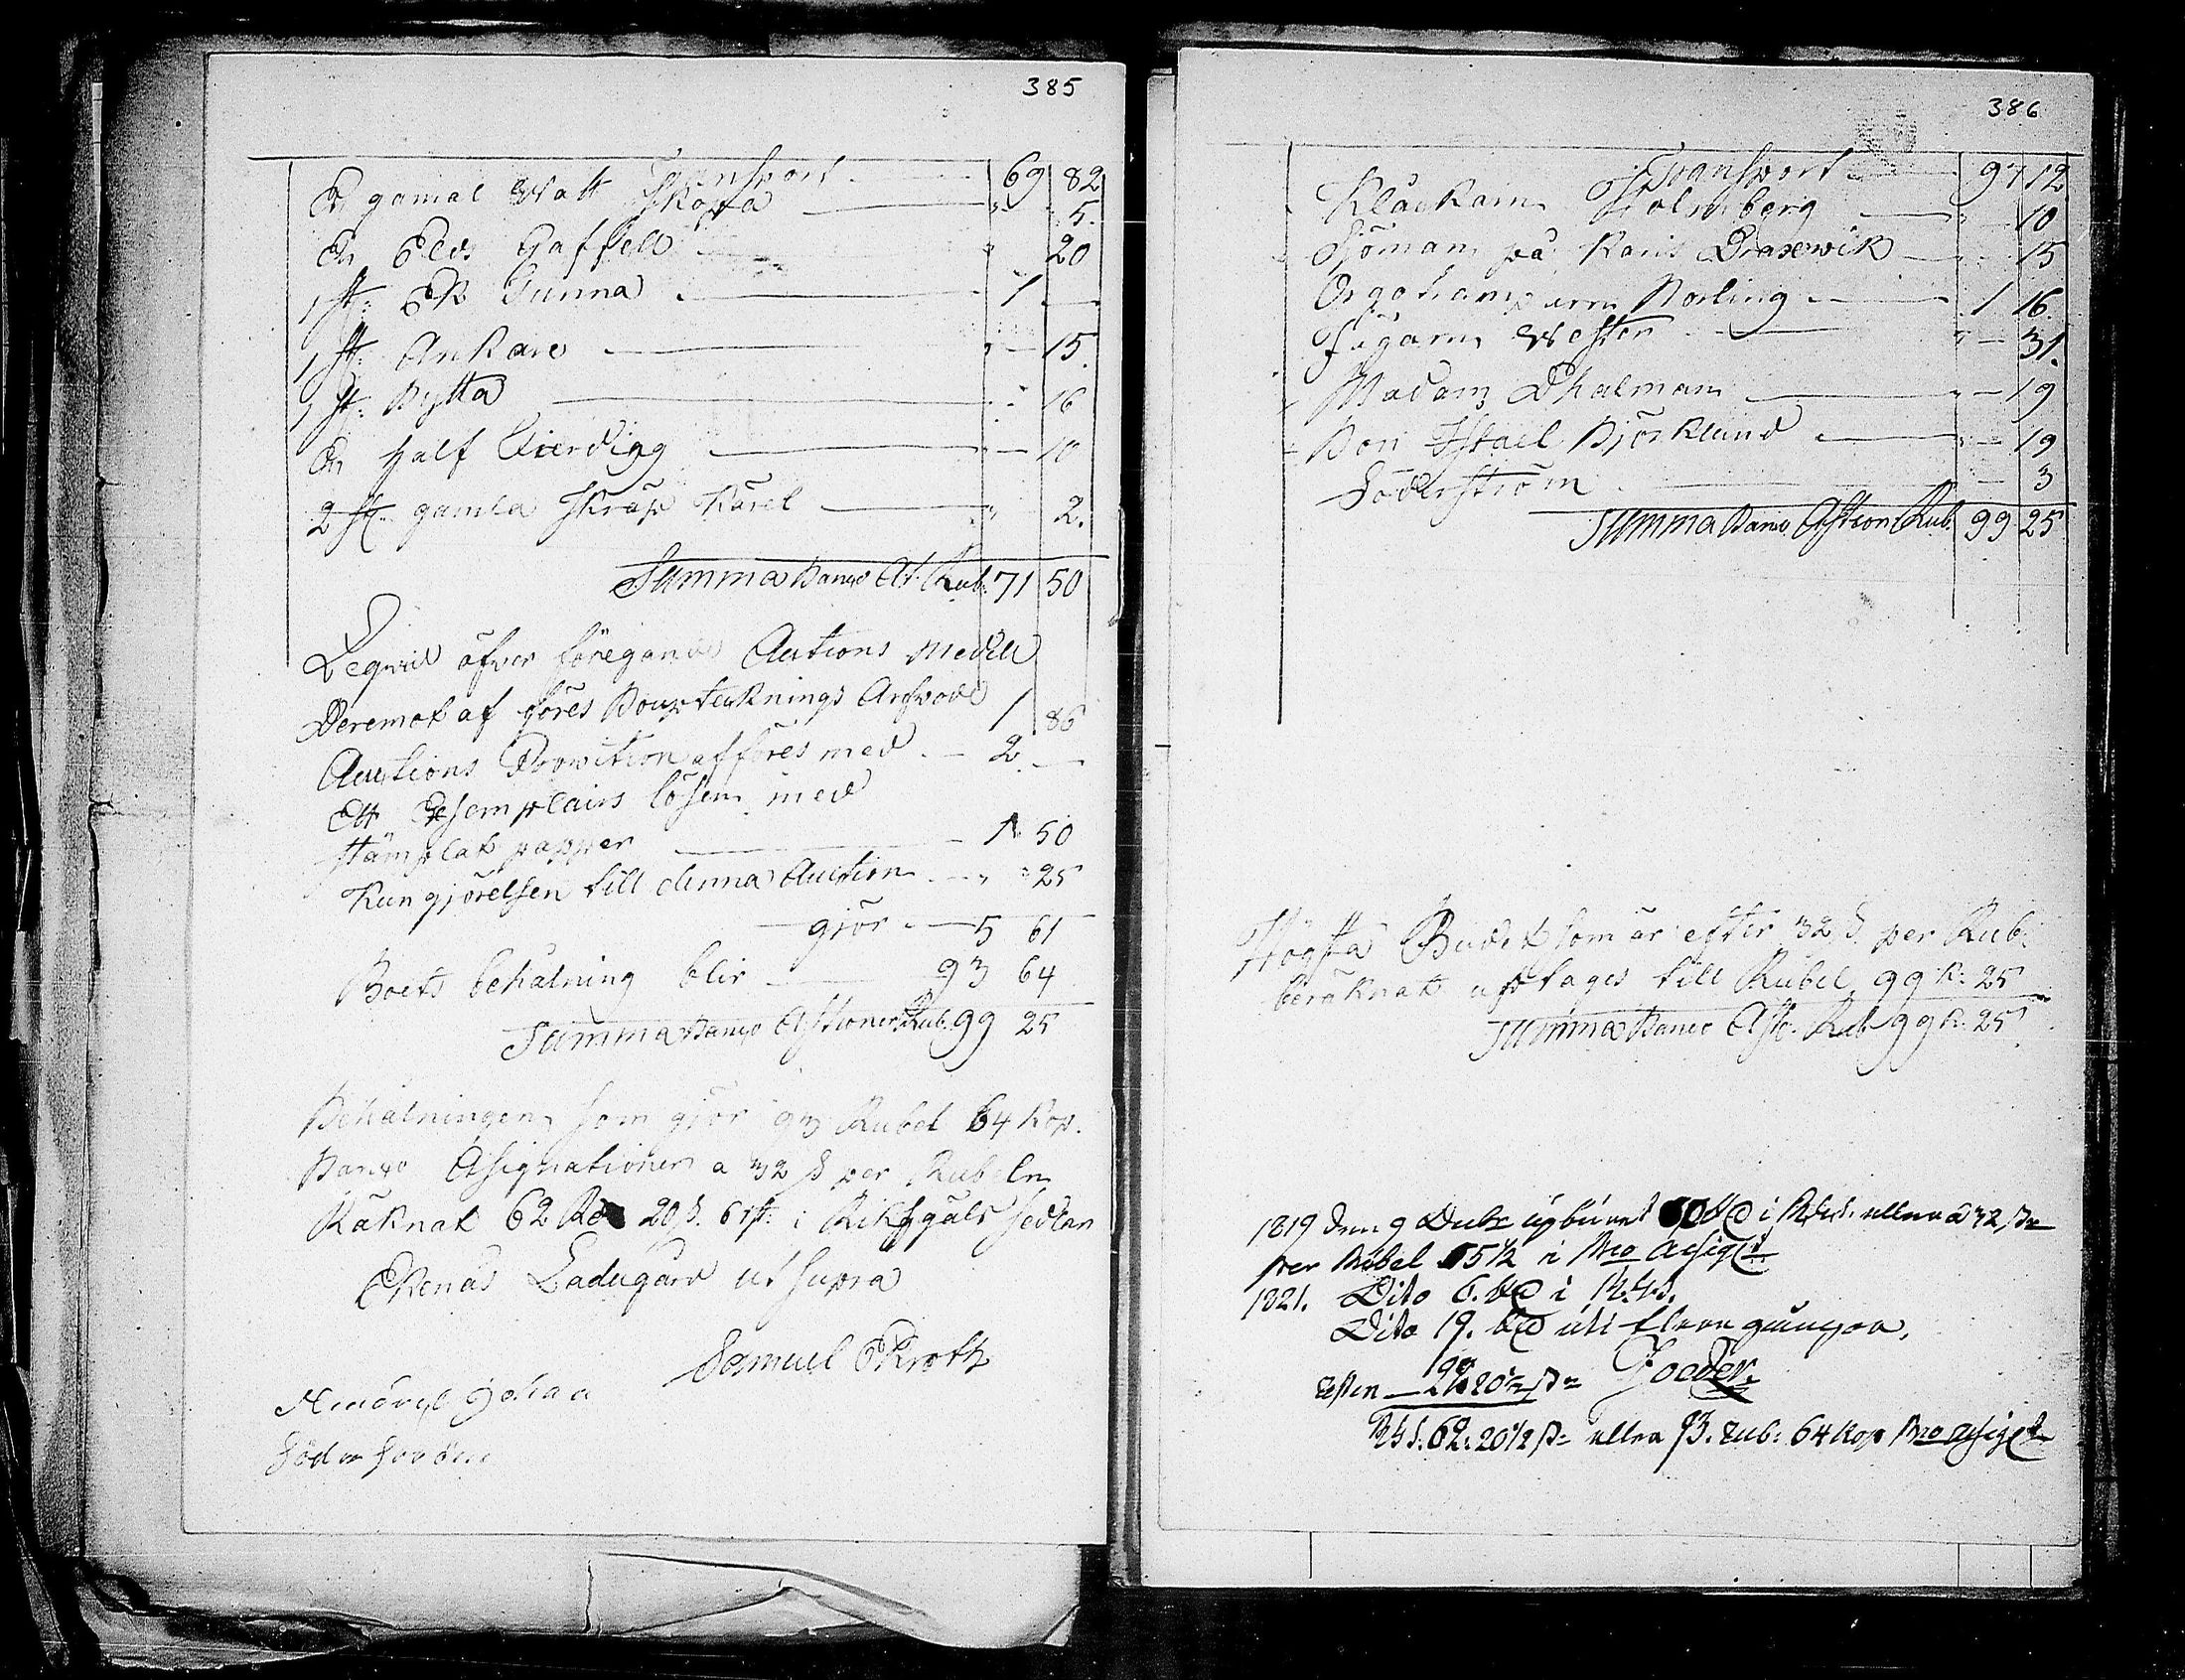 385
Transport 69 82
En gamal Watt Skopa " 5.
En Elds Gaffell " 20
1 st: Ek Tunna 1 —
1 st: Ankare " 15.
1 st: Bytta " 16
En half Tierding " 10
2 st. gamla Skräp Käril " 2.
Summa Banco As: Rub. 71 50
Leqvid öfver föregande Auctions Medell
Deremot af föres Bouptecknings Arfvode 1 86
Auctions Provition afföres med 2. —
Ett Exsemplairs lösen med
stämplat papper 1. 50
Kungjörelsen till denna Auction " 25
giör 5 61
Boets behålning blir 93 64
Summa Banco Assioner Rub. 99 25
Behålningen som giör 93 Rubel 64 Kop.
Banco Asignationer a 32 s per Rubeln
Räknat 62 Rd 20 s. 6 rst: i Riksgäls Sedlar
Ekenäs Ladugård ut supra
Samuel Ekroth
Johan
Söderström
386
Transport 97 12
Klåckarn Holmberg " 10
Sjöman på Karis Draxwik " 15
Orgotramparen Norling 1 16.
Jägarn Wester " 31.
Madam Dhalman " 19
Bon Israel Björklund " 19
Söderström " 3
Summa Banco Assion Rub. 99 25
Högsta Budet som är efter 32 s. per Rub:
beräknat upptages till Rubel 99 k: 25
Summa Banco Ass. Rub 99 k. 25
1819 den 9 Decbr upburet i eller a 32 s
per Rubel 15 1/2 i Bco Assig
1821. Dito 6. i R.G.S.
Dito 19. uti flera gångor,
resten 20 1/2 s
RGS. 62. 20 1/2 s eller 93. rub: 64 kop Bco Assig